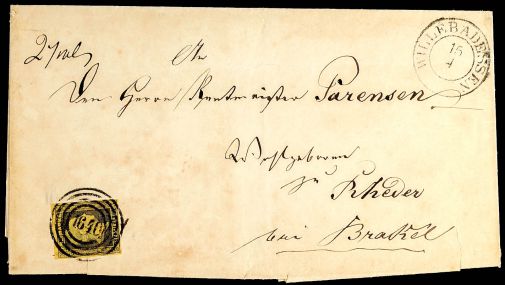 WILLEBADESSEN
15
4
An
Den Herrn Rentmeister Parensen
Wohlgeboren
zu
Rheder
bei Brakel
1640